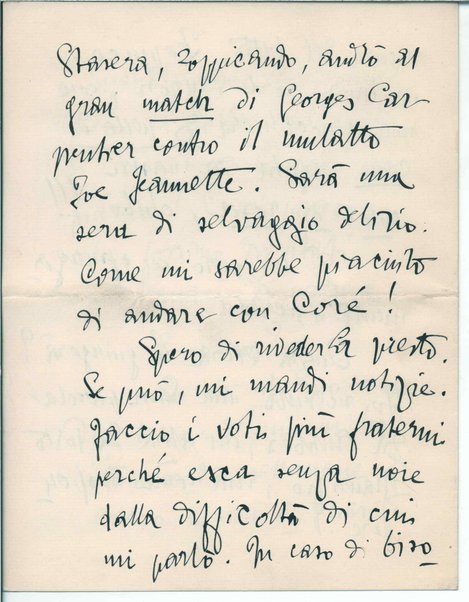 Stasera, zoppicando, andrò al
gran match di Georges Car-
pentier contro il mulatto
Joe Jeannette. Sarà una
sera di selvaggio delirio.
Come mi sarebbe piaciuto
di andare con Coré!
Spero di rivederLa presto.
Se può, mi mandi notizie.
Faccio i voti più fraterni
perché esca senza noie
dalla difficoltà di cui
mi parlò. In caso di biso